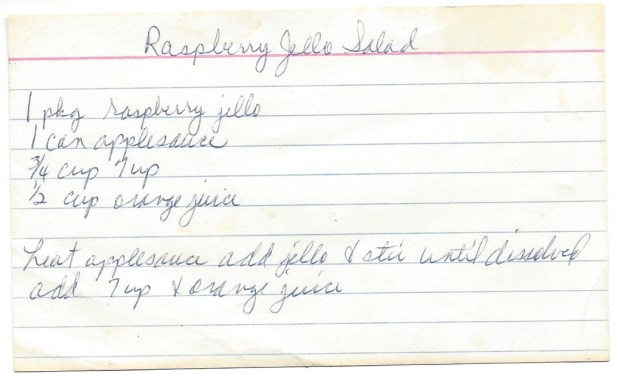 Raspberry Jello Salad
1 pkg raspberry jello
1 can applesauce
3/4 cup 7up
1/2 cup orange juice
heat applesauce add jello & stir until dissolved
add 7up & orange juice